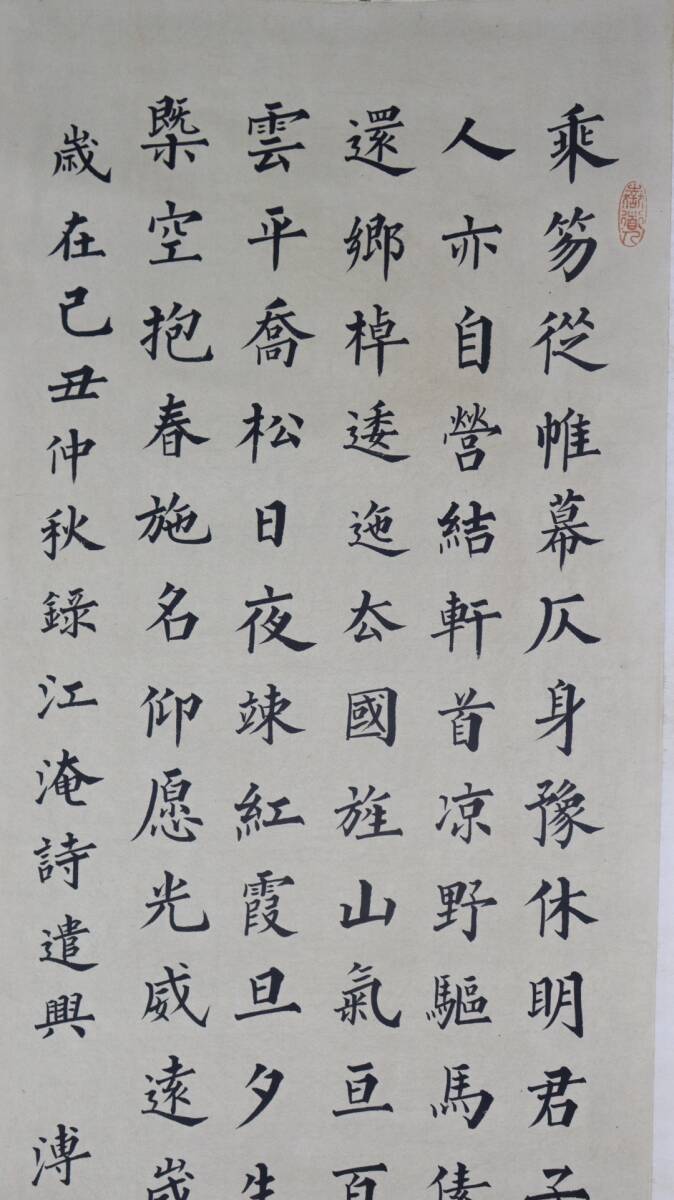 乘笏從帷幕仄身豫休明君子
人亦自營結軒首凉野驅馬傃
還鄉棹逶迤去國旌山氣亘百
雲平喬松日夜竦紅霞旦夕生
槩空抱春施名仰愿光威遠歲
歲在己丑仲秋錄江淹詩遣興 溥